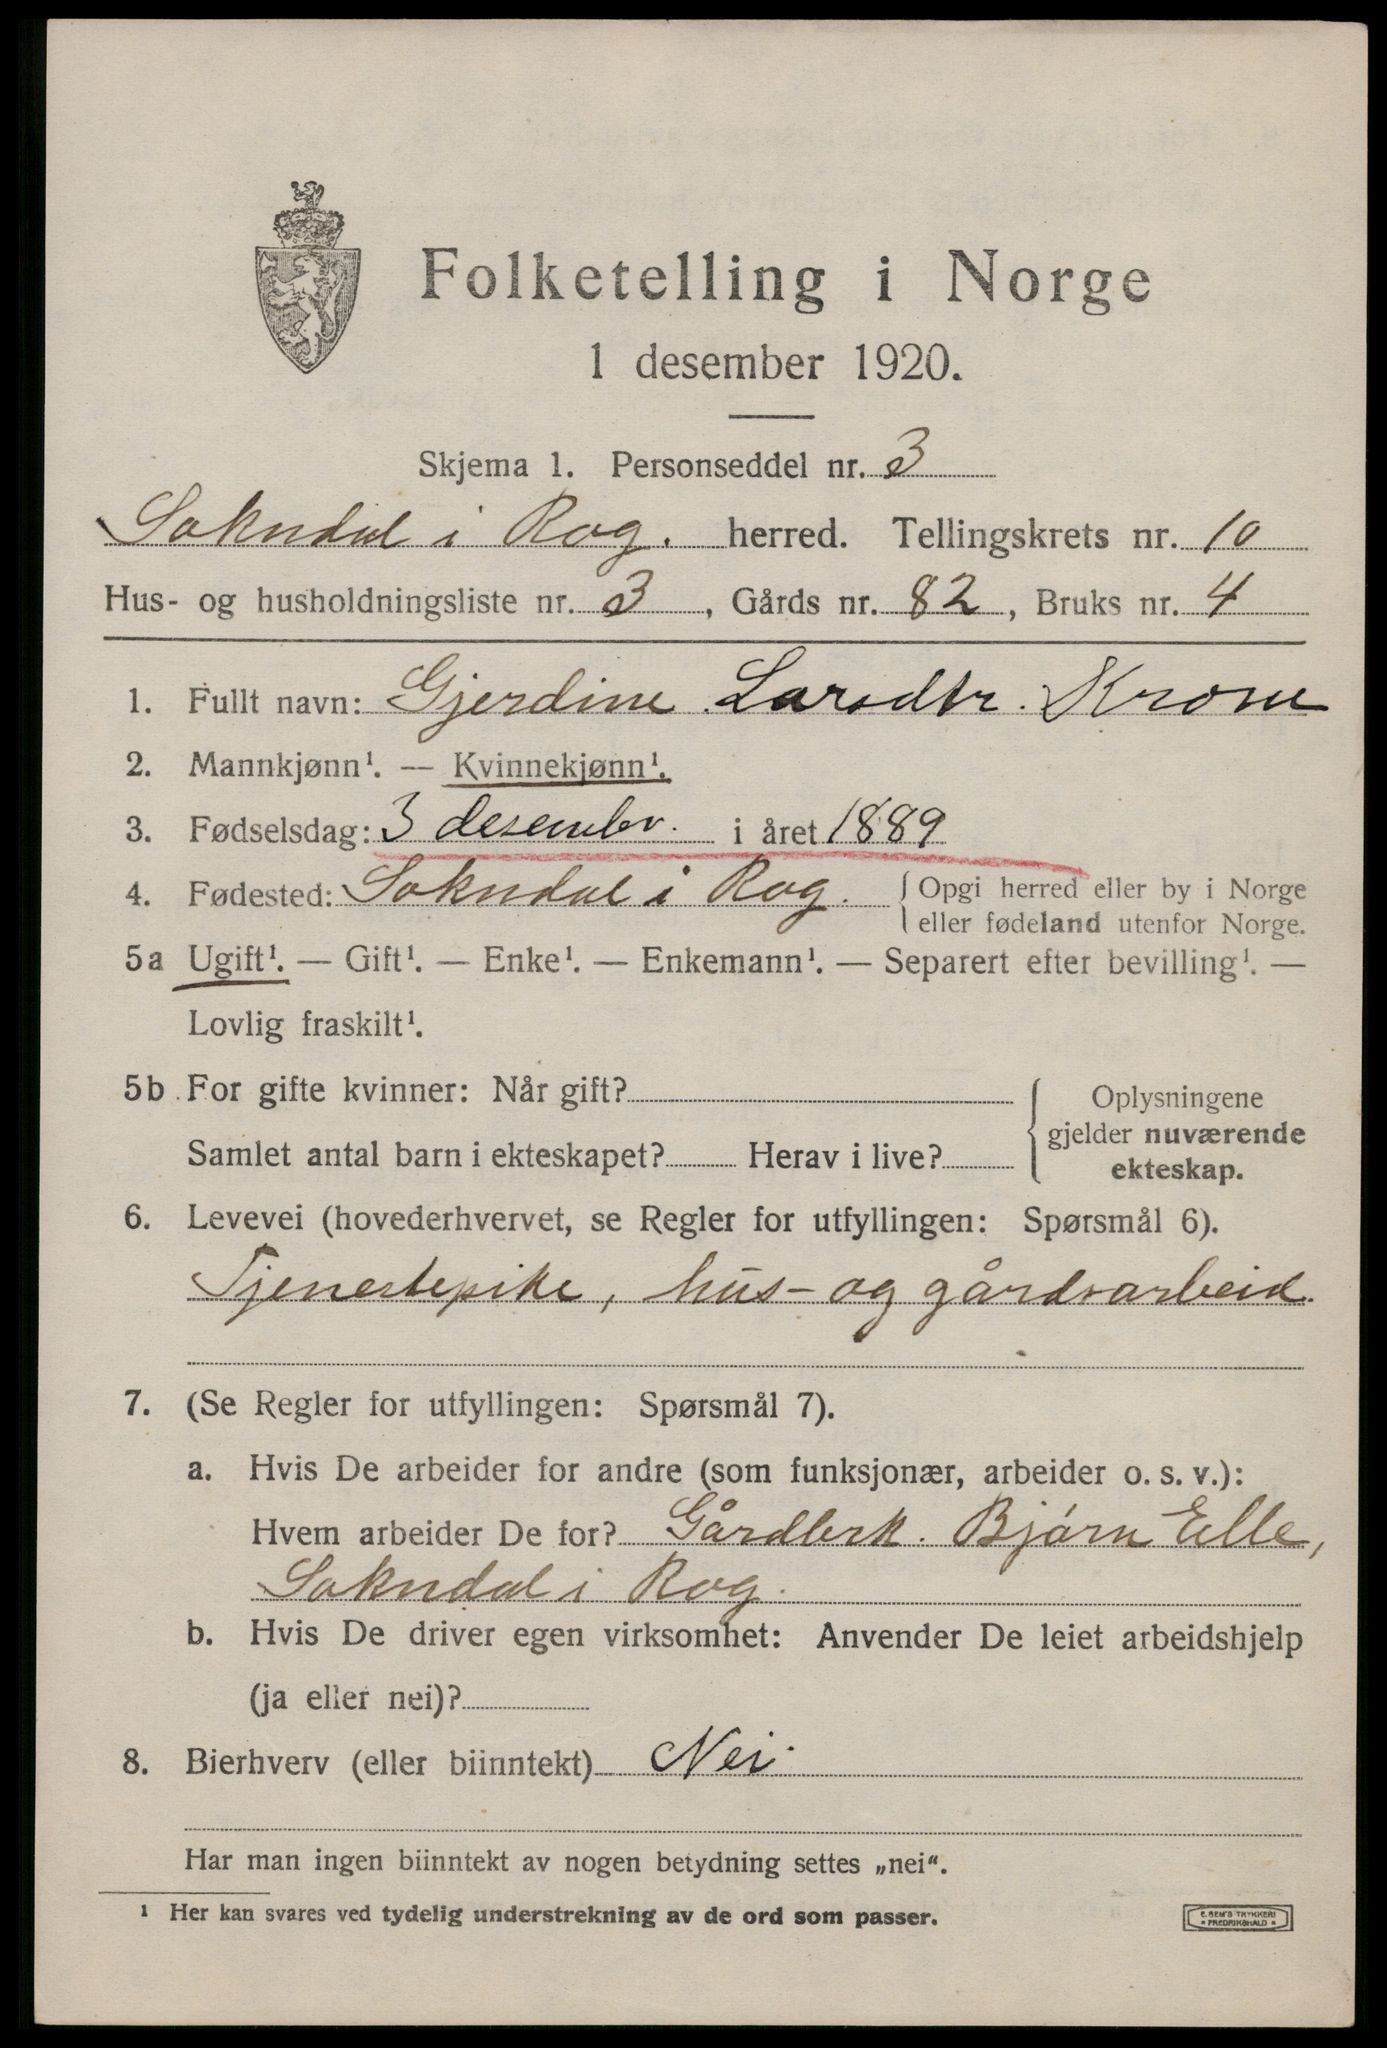 Folketelling i Norge
1 desember 1920.
Skjema 1. Personseddel nr. 3
Sokndal i Rog. herred. Tellingskrets nr. 10
Hus- og husholdningsliste nr. 3, Gårds nr. 82, Bruks nr. 4
1. Fullt navn: Gjerdine Larsdtr. Krone
2. Mannkjønn¹. — Kvinnekjønn¹.
3. Fødselsdag: 3 desember. i året 1889
4. Fødested: Sokndal i Rog. { Opgi herred eller by i Norge
eller fødeland utenfor Norge.
5a Ugift¹. — Gift¹. — Enke¹. — Enkemann¹. — Separert efter bevilling¹. —
Lovlig fraskilt¹.
5b For gifte kvinner: Når gift?
Samlet antal barn i ekteskapet? Herav i live?
{ Oplysningene
gjelder nuværende
ekteskap.
6. Levevei (hovederhvervet, se Regler for utfyllingen: Spørsmål 6).
Tjenestepike, hus- og gårdsarbeid.
7. (Se Regler for utfyllingen: Spørsmål 7).
a. Hvis De arbeider for andre (som funksjonær, arbeider o. s. v.):
Hvem arbeider De for? Gårdbrk. Bjørn Elle,
Sokndal i Rog.
b. Hvis De driver egen virksomhet: Anvender De leiet arbeidshjelp
(ja eller nei)?
8. Bierhverv (eller biinntekt) Nei.
Har man ingen biinntekt av nogen betydning settes „nei“.
¹ Her kan svares ved tydelig understrekning av de ord som passer.
E. SEM'S TRYKKERI
• FREDRIKSHALD •